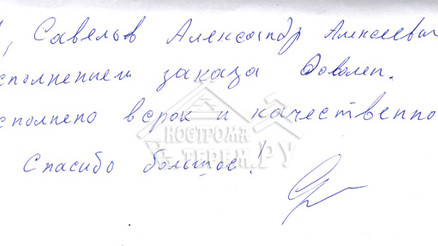 , Савельв Александр Алексеевич
сполнением заказа доволен.
сполнено в срок и качественно
Спасибо большое!
КОСТРОМА
ТЕРЕМ.РУ